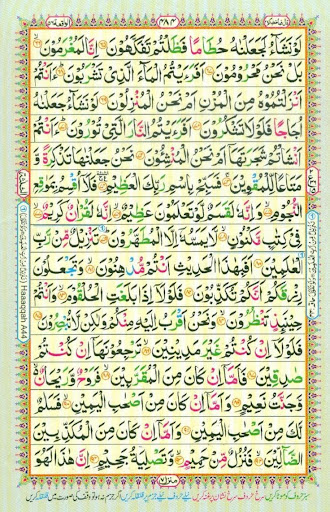 لَوْ نَشَآءُ لَجَعَلْنٰهُ حُطَامًا فَظَلْتُمْ تَفَكَّهُوْنَ ﴿۶۵﴾ اِنَّا لَمُغْرَمُوْنَ ﴿۶۶﴾
بَلْ نَحْنُ مَحْرُوْمُوْنَ ﴿۶۷﴾ اَفَرَءَيْتُمُ الْمَآءَ الَّذِيْ تَشْرَبُوْنَ ﴿۶۸﴾ ءَاَنْتُمْ
اَنْزَلْتُمُوْهُ مِنَ الْمُزْنِ اَمْ نَحْنُ الْمُنْزِلُوْنَ ﴿۶۹﴾ لَوْ نَشَآءُ جَعَلْنٰهُ
اُجَاجًا فَلَوْلَا تَشْكُرُوْنَ ﴿۷۰﴾ اَفَرَءَيْتُمُ النَّارَ الَّتِيْ تُوْرُوْنَ ﴿۷۱﴾ ءَاَنْتُمْ
اَنْشَاْتُمْ شَجَرَتَهَآ اَمْ نَحْنُ الْمُنْشِـُٔوْنَ ﴿۷۲﴾ نَحْنُ جَعَلْنٰهَا تَذْكِرَةً وَّ
مَتَاعًا لِّلْمُقْوِيْنَ ﴿۷۳﴾ فَسَبِّحْ بِاسْمِ رَبِّكَ الْعَظِيْمِ ﴿۷۴﴾ فَلَآ اُقْسِمُ بِمَوٰقِعِ
النُّجُوْمِ ﴿۷۵﴾ وَاِنَّهٗ لَقَسَمٌ لَّوْ تَعْلَمُوْنَ عَظِيْمٌ ﴿۷۶﴾ اِنَّهٗ لَقُرْاٰنٌ كَرِيْمٌ ﴿۷۷﴾
فِيْ كِتٰبٍ مَّكْنُوْنٍ ﴿۷۸﴾ لَّا يَمَسُّهٗٓ اِلَّا الْمُطَهَّرُوْنَ ﴿۷۹﴾ تَنْزِيْلٌ مِّنْ رَّبِّ
الْعٰلَمِيْنَ ﴿۸۰﴾ اَفَبِهٰذَا الْحَدِيْثِ اَنْتُمْ مُّدْهِنُوْنَ ﴿۸۱﴾ وَتَجْعَلُوْنَ
رِزْقَكُمْ اَنَّكُمْ تُكَذِّبُوْنَ ﴿۸۲﴾ فَلَوْلَآ اِذَا بَلَغَتِ الْحُلْقُوْمَ ﴿۸۳﴾ وَاَنْتُمْ
حِيْنَئِذٍ تَنْظُرُوْنَ ﴿۸۴﴾ وَنَحْنُ اَقْرَبُ اِلَيْهِ مِنْكُمْ وَلٰكِنْ لَّا تُبْصِرُوْنَ ﴿۸۵﴾
فَلَوْلَآ اِنْ كُنْتُمْ غَيْرَ مَدِيْنِيْنَ ﴿۸۶﴾ تَرْجِعُوْنَهَآ اِنْ كُنْتُمْ
صٰدِقِيْنَ ﴿۸۷﴾ فَاَمَّآ اِنْ كَانَ مِنَ الْمُقَرَّبِيْنَ ﴿۸۸﴾ فَرَوْحٌ وَّرَيْحَانٌ
وَّجَنَّتُ نَعِيْمٍ ﴿۸۹﴾ وَاَمَّآ اِنْ كَانَ مِنْ اَصْحٰبِ الْيَمِيْنِ ﴿۹۰﴾ فَسَلٰمٌ
لَّكَ مِنْ اَصْحٰبِ الْيَمِيْنِ ﴿۹۱﴾ وَاَمَّآ اِنْ كَانَ مِنَ الْمُكَذِّبِيْنَ
الضَّآلِّيْنَ ﴿۹۲﴾ فَنُزُلٌ مِّنْ حَمِيْمٍ ﴿۹۳﴾ وَّتَصْلِيَةُ جَحِيْمٍ ﴿۹۴﴾ اِنَّ هٰذَا لَهُوَ
منزل ۷